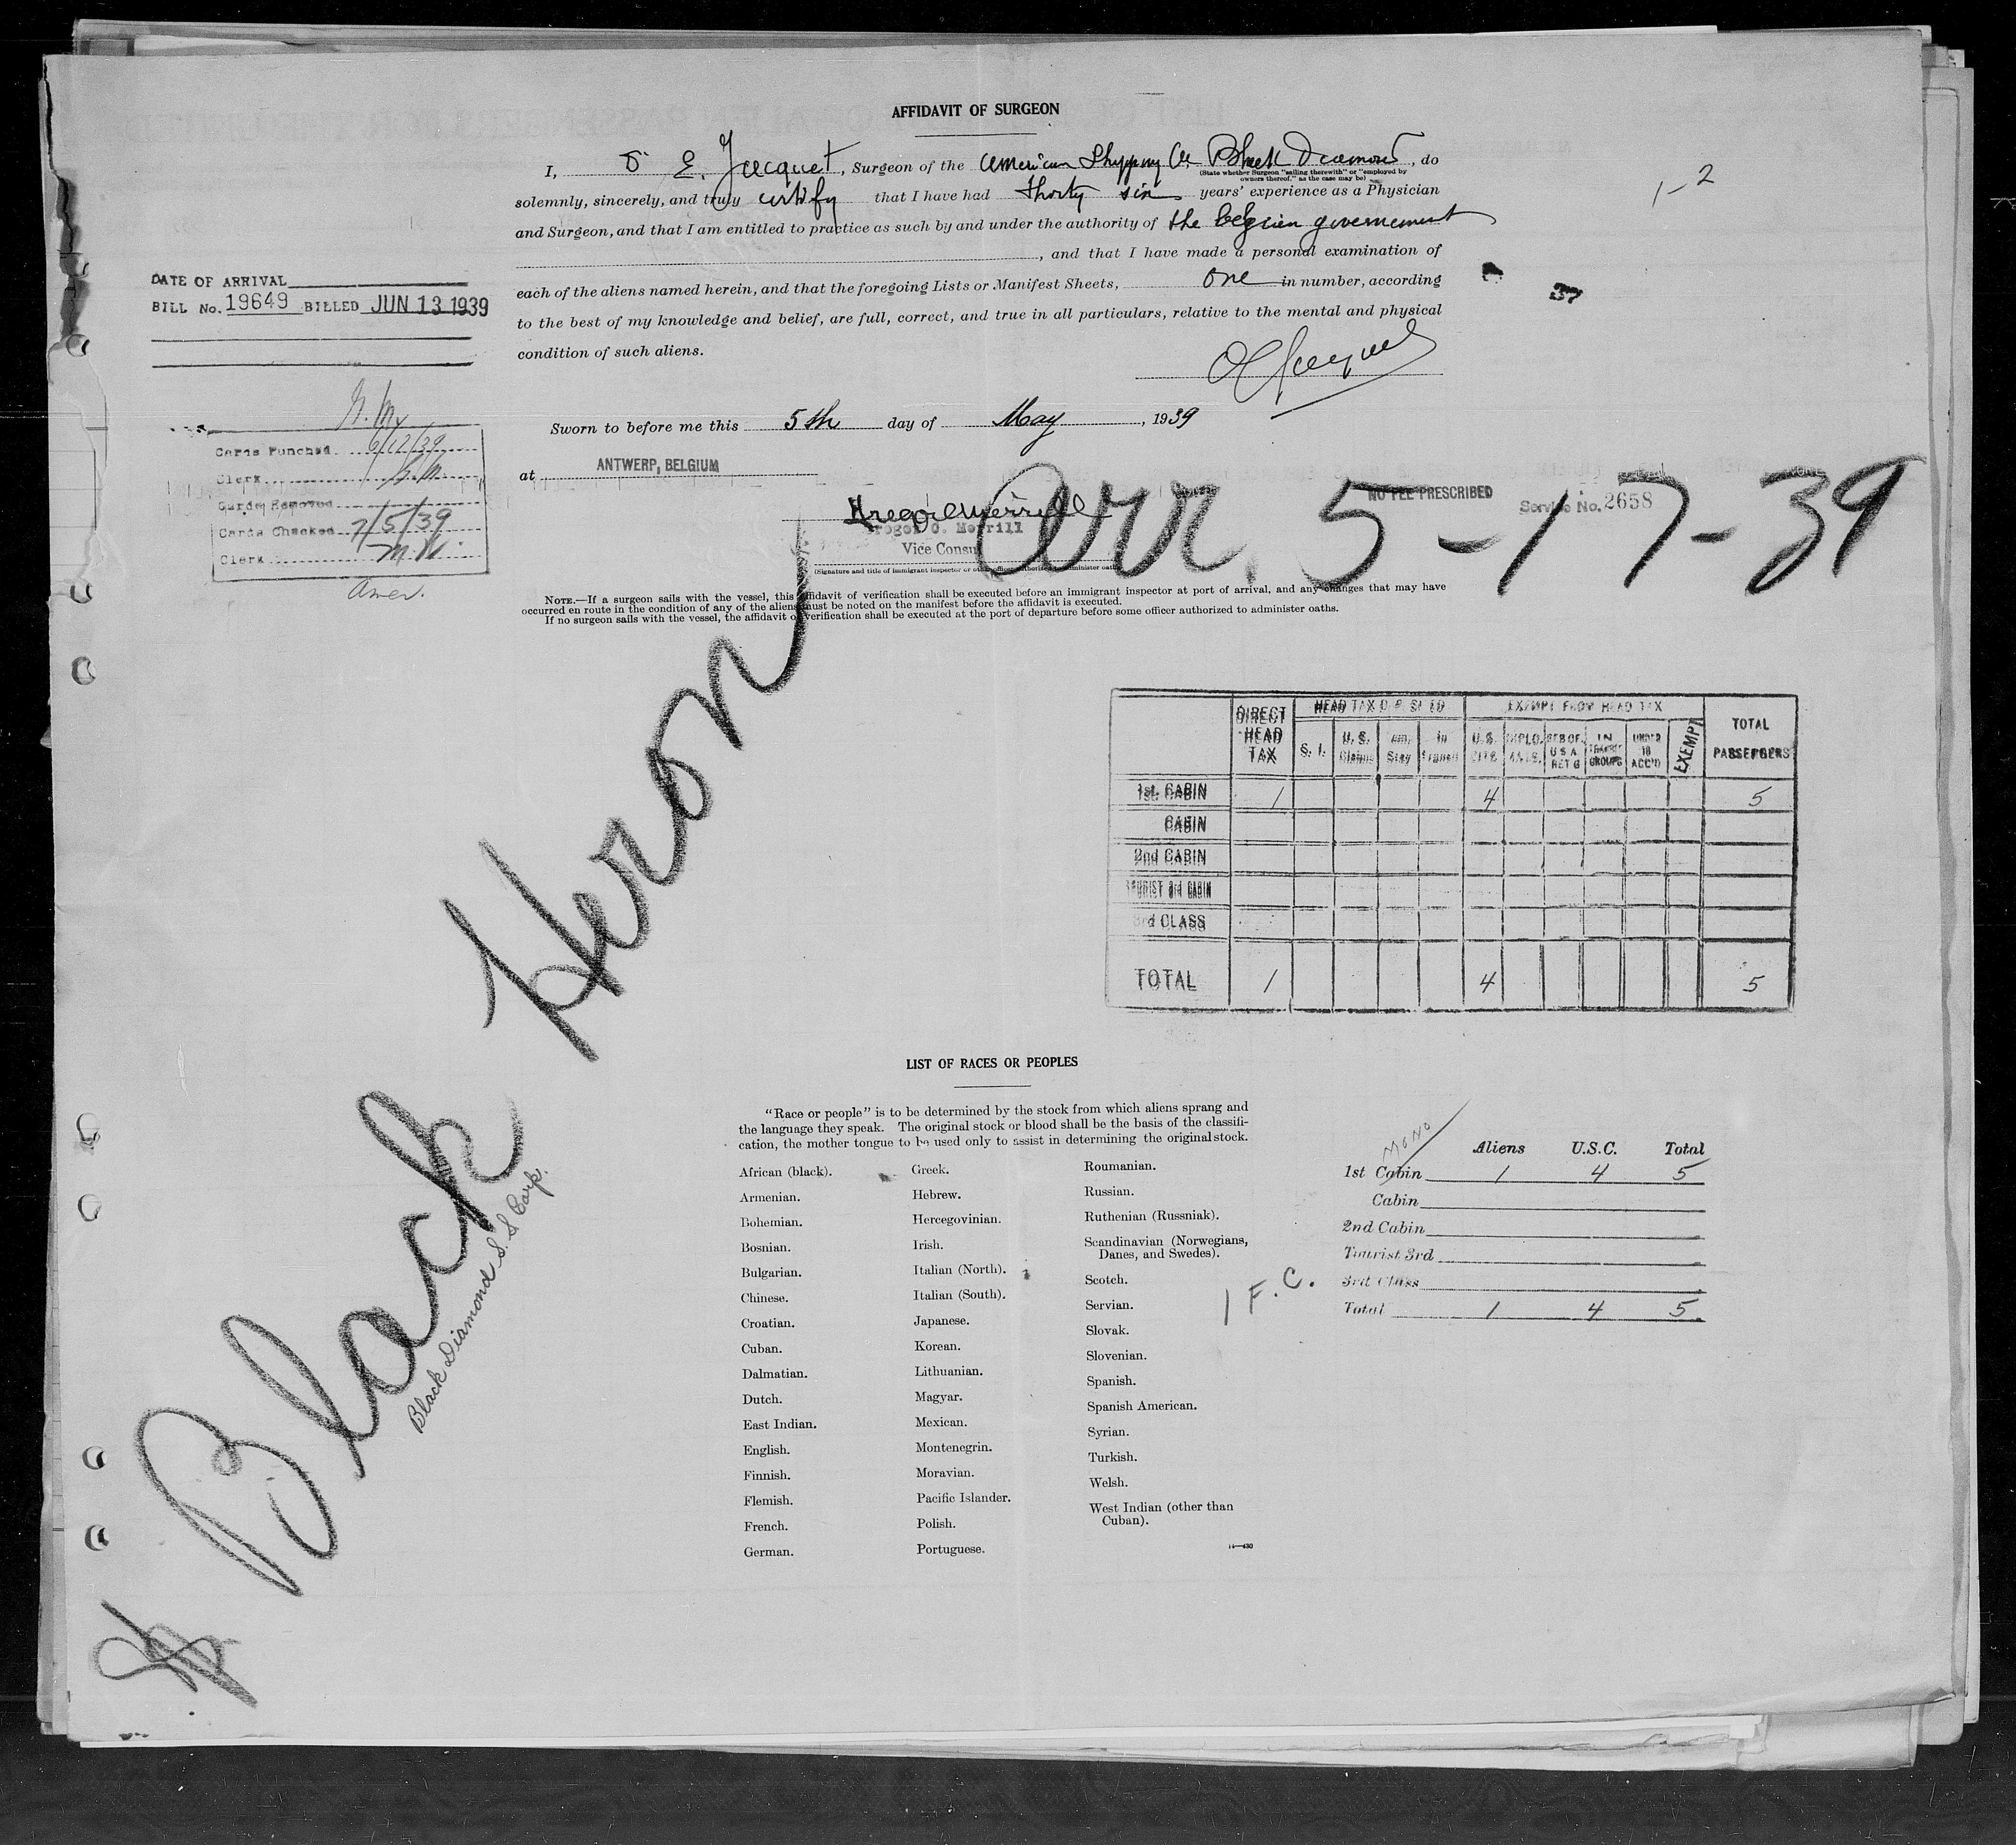 AFFIDAVIT OF SURGEON
I, O E. Jacquet, Surgeon of the American Shipping Co. Black Diamond, do
(State whether Surgeon "sailing therewith" or "employed by
owners thereof," as the case may be)
solemnly, sincerely, and truly certify that I have had thirty six years' experience as a Physician
and Surgeon, and that I am entitled to practice as such by and under the authority of the belgian governement
, and that I have made a personal examination of
each of the aliens named herein, and that the foregoing Lists or Manifest Sheets, One in number, according
to the best of my knowledge and belief, are full, correct, and true in all particulars, relative to the mental and physical
condition of such aliens.
OE Jacquet
Sworn to before me this 5th day of May, 1939
at ANTWERP, BELGIUM
1-2
37
DATE OF ARRIVAL
BILL No. 19649 BILLED JUN 13 1939
Cards Punched 6/12/39
Clerk
Cards Removed
Cards Checked 7/5/39
Clerk M.W.
Amer.
NO FEE PRESCRIBED
Service No. 2658
C. Merrill
Vice Consul
Arr. 5-17-39
NOTE.—If a surgeon sails with the vessel, this affidavit of verification shall be executed before an immigrant inspector at port of arrival, and any changes that may have
occurred en route in the condition of any of the aliens must be noted on the manifest before the affidavit is executed.
If no surgeon sails with the vessel, the affidavit of verification shall be executed at the port of departure before some officer authorized to administer oaths.
Black Heron
Black Diamond S. S. Corp.
DIRECT HEAD TAX
EXEMPT FROM HEAD TAX
S. I.
U. S.
In Transit
U.S. CITS.
IN TRANSIT GROUPS
UNDER 16 ACC'D
EXEMPT
TOTAL PASSENGERS
1st CABIN 1 4 5
CABIN
2nd CABIN
TOURIST 3rd CABIN
3rd CLASS
TOTAL 1 4 5
LIST OF RACES OR PEOPLES
"Race or people" is to be determined by the stock from which aliens sprang and
the language they speak. The original stock or blood shall be the basis of the classifi-
cation, the mother tongue to be used only to assist in determining the original stock.
African (black).
Armenian.
Bohemian.
Bosnian.
Bulgarian.
Chinese.
Croatian.
Cuban.
Dalmatian.
Dutch.
East Indian.
English.
Finnish.
Flemish.
French.
German.
Greek.
Hebrew.
Hercegovinian.
Irish.
Italian (North).
Italian (South).
Japanese.
Korean.
Lithuanian.
Magyar.
Mexican.
Montenegrin.
Moravian.
Pacific Islander.
Polish.
Portuguese.
Roumanian.
Russian.
Ruthenian (Russniak).
Scandinavian (Norwegians,
Danes, and Swedes).
Scotch.
Servian.
Slovak.
Slovenian.
Spanish.
Spanish American.
Syrian.
Turkish.
Welsh.
West Indian (other than
Cuban).
1 F.C.
MONO
Aliens U.S.C. Total
1st Cabin 1 4 5
Cabin
2nd Cabin
Tourist 3rd
3rd Class
Total 1 4 5